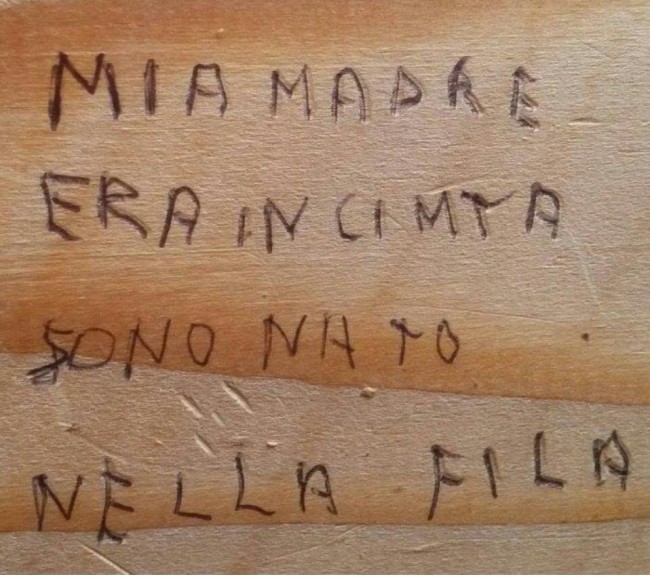 MIA MADRE
ERA IN CIMTA
SONO NATO
NELLA FILA